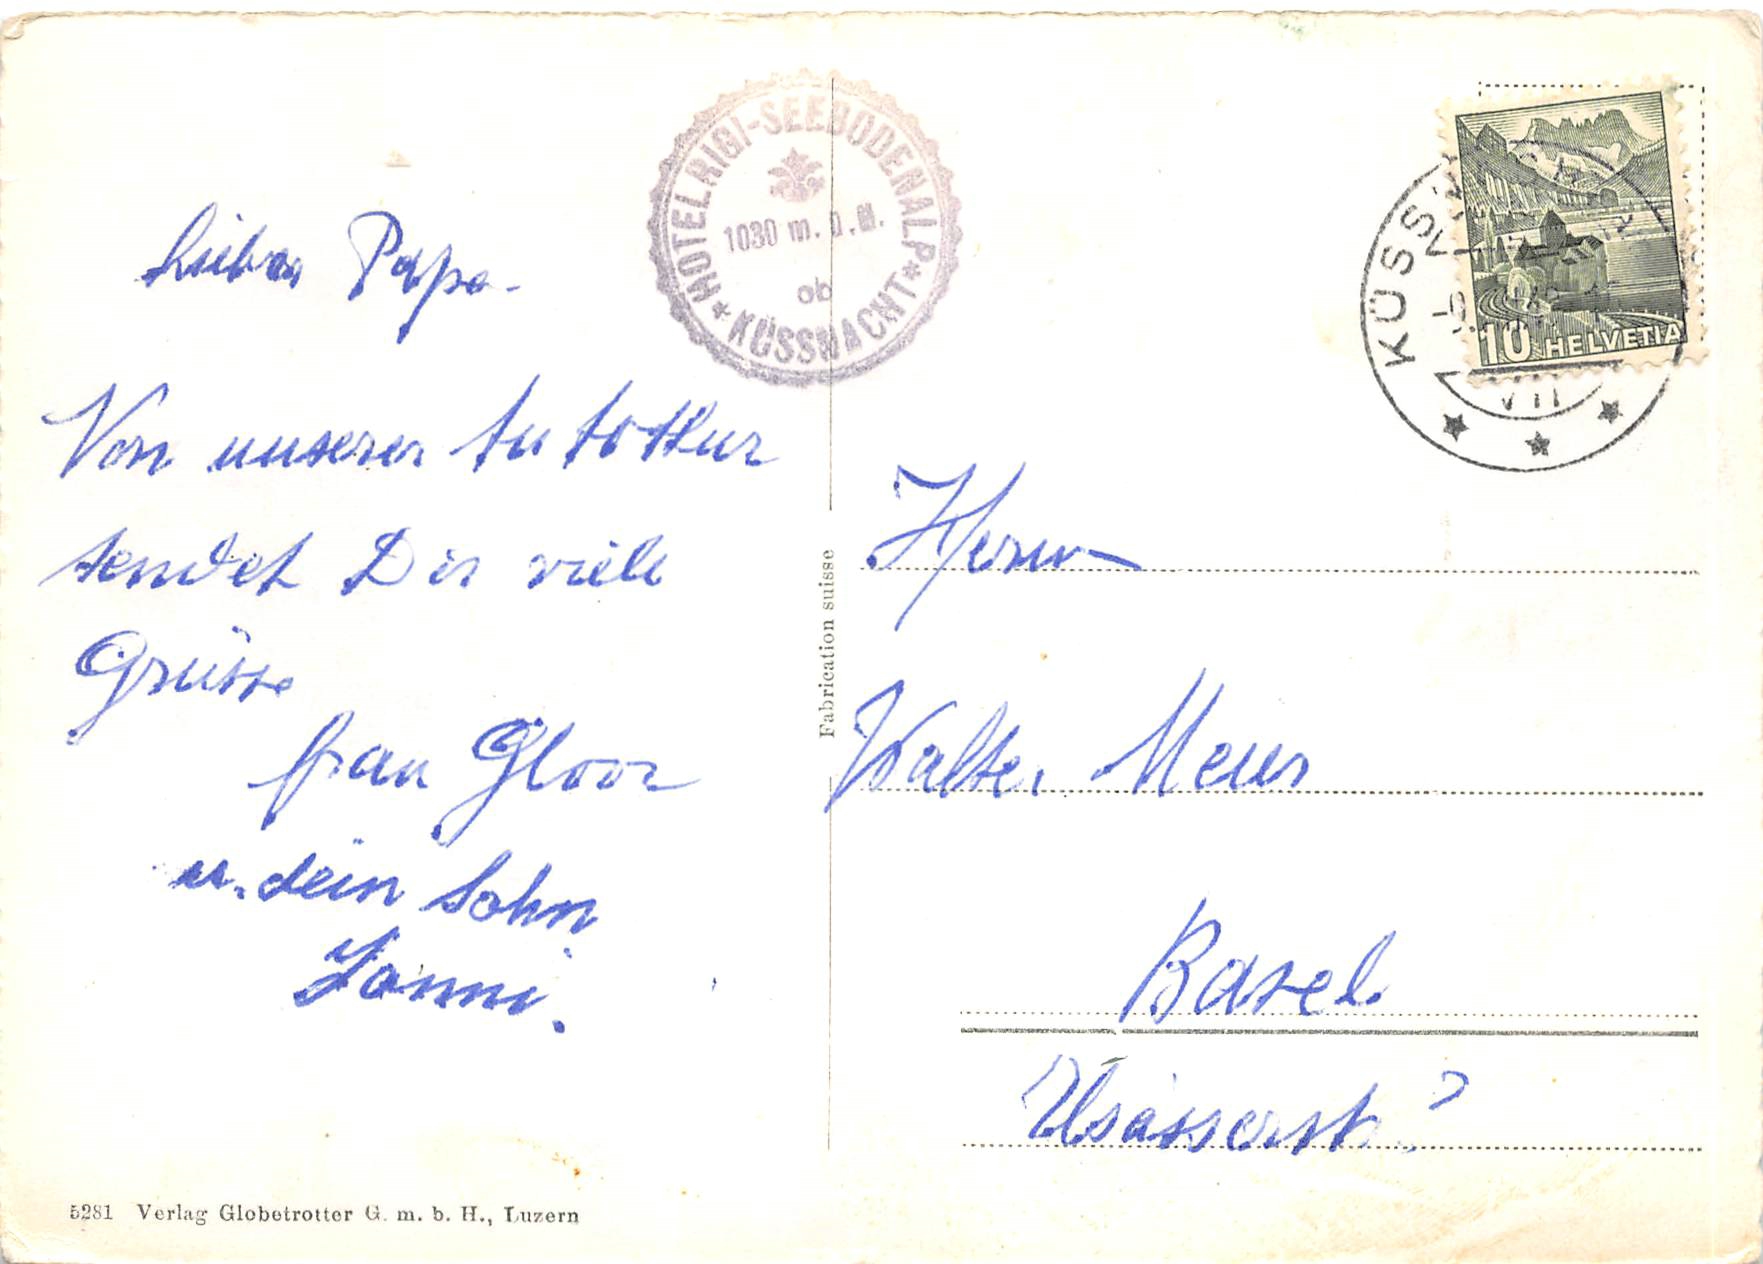 HOTEL RIGI-SEEBODENALP
1030 m.ü.M.
ob
* KÜSSNACHT *
10 HELVETIA
KÜSSN
VII
Lieber Papa.
Von unserer Autotour
sendet Dir viele
Grüsse
frau Gloor
u. dein Sohn
Jonni.
Herrn
Walter Meier
Basel
Elsässerstr. ?
Fabrication suisse
5281 Verlag Globetrotter G. m. b. H., Luzern